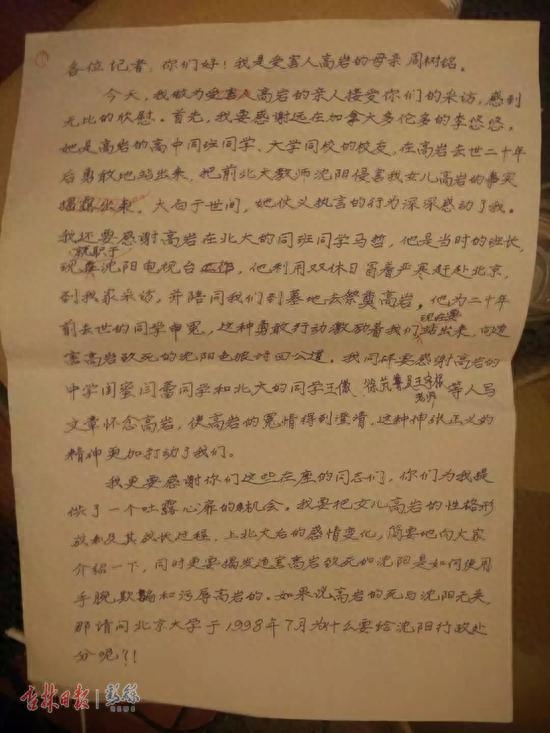 ①
各位记者：你们好！我是受害人高岩的母亲周树铭。
今天，我做为受害人高岩的亲人接受你们的采访，感到
无比的欣慰。首先，我要感谢远在加拿大多伦多的李悠悠，
她是高岩的高中同班同学、大学同校的校友，在高岩去世二十年
后勇敢地站出来，把前北大教师沈阳侵害我女儿高岩的事实
揭露出来，大白于世间，她仗义执言的行为深深感动了我。
我还要感谢高岩在北大的同班同学马哲，他是当时的班长，
现就职于沈阳电视台，他利用双休日冒着严寒赶赴北京，
到我家采访，并陪同我们到墓地去祭奠高岩。他为二十年
前去世的同学申冤，这种勇敢行动激励着我们现在要站出来，向迫
害高岩致死的沈阳也照讨回公道。我同研要感谢高岩的
中学闺蜜闫蕾同学和北大的同学王傲、徐芃、老师等人写
文章怀念高岩，使高岩的冤情得到澄清，这种伸张正义的
精神更加打动了我们。
我更要感谢你们这些在座的同志们，你们为我提
供了一个吐露心扉的机会。我要把女儿高岩的性格形
成和及其成长过程，上北大后的感情变化，简要地向大家
介绍一下，同时更要揭发迫害高岩致死的沈阳是如何使用
手腕欺骗和污辱高岩的。如果说高岩的死与沈阳无关，
那请问北京大学于1998年7月为什么要给沈阳行政处
分呢？！
吉林日报 彩练